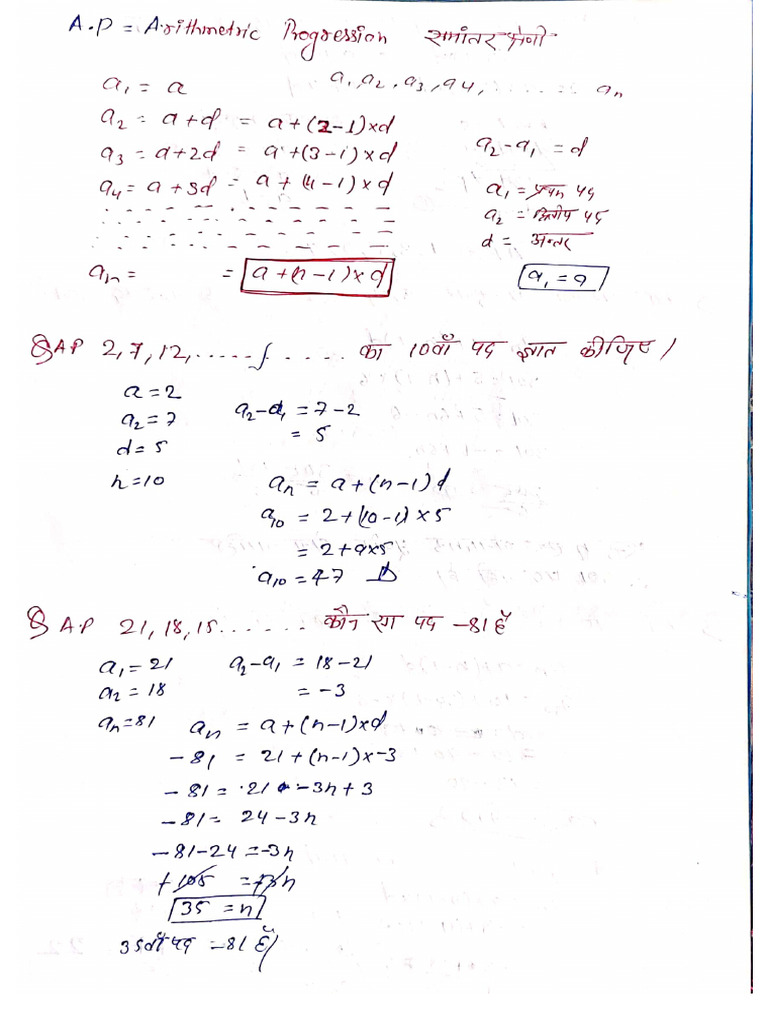 A.P = Arithmetric Progression समांतर श्रेणी
a₁ = a a₁, a₂, a₃, a4, ........ aₙ
a₂ = a+d = a+(2-1)xd
a₃ = a+2d = a+(3-1)xd a₂-a₁ = d
a₄ = a+3d = a+(4-1)xd a₁ = प्रथम पद
a₂ = द्वितीय पद
d = अन्तर
aₙ = = a+(n-1)xd a₁ = a
Q AP 2, 7, 12, ........... का 10वाँ पद ज्ञात कीजिए।
a = 2
a₂ = 7 a₂-a₁ = 7-2
d = 5 = 5
n = 10 aₙ = a+(n-1)d
a₁₀ = 2+(10-1)x5
= 2+9x5
a₁₀ = 47
Q A.P 21, 18, 15....... कौन सा पद -81 है
a₁ = 21 a₂-a₁ = 18-21
a₂ = 18 = -3
aₙ = 81 aₙ = a+(n-1)xd
-81 = 21+(n-1)x-3
-81 = 21 -3n+3
-81 = 24-3n
-81-24 = -3n
+105 = +3n
35 = n
35वाँ पद -81 है।